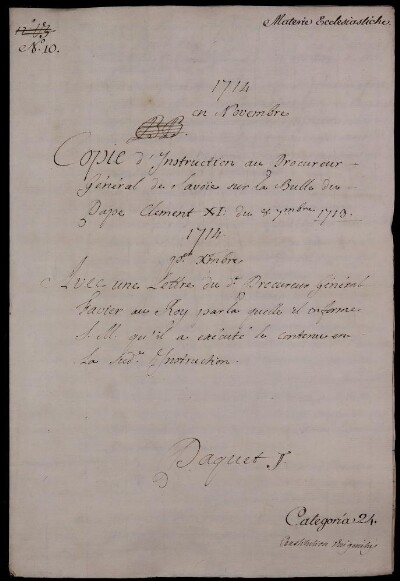 Materie Ecclesiastiche
N.° 10.
1714
en Novembre
Copie d'Instruction au Procureur
Général de Savoie sur la Bulle du
Pape Clement XI. du 7mbre 1713.
1714.
Xmbre
Avec une Lettre du dt Procureur général
Favier au Roy par la quelle il informe
S. M. qu'il a exécuté le contenu en
la Instruction.
Paquet
Categoria 24.
Constitution